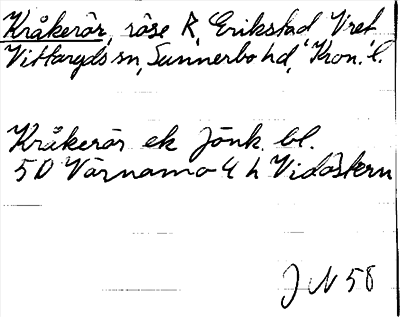 Kråkerör, röse R, Erikstad Vret
Vittaryds sn, Sunnerbo hd, Kron. l.
Kråkerör ek Jönk. bl.
5D Värnamo 4 h Vidöstern
J N 58